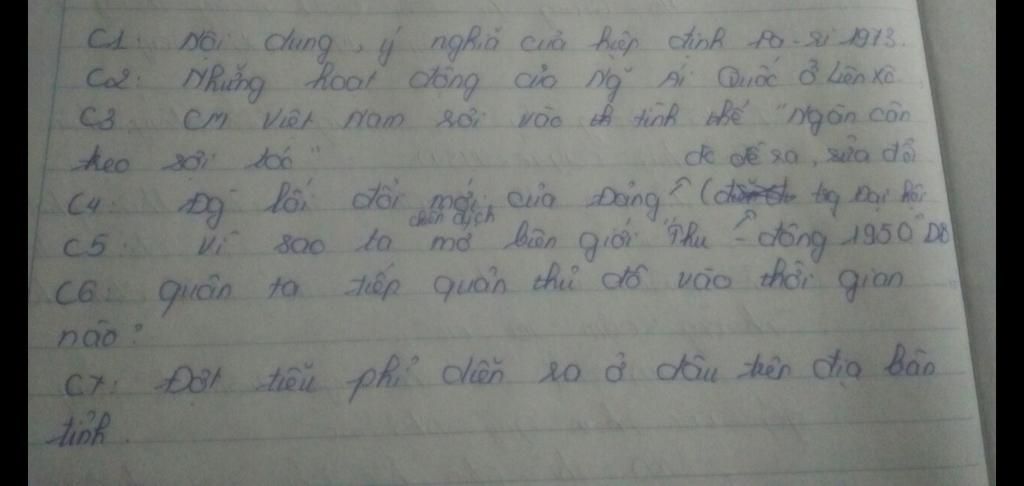 C1: Nội dung, ý nghĩa của hiệp định Pa-ri 1973.
C2: Những hoạt động của Ng̃ Ái Quốc ở Liên Xô
C3 CM Việt Nam rơi vào tình thế "Ngàn cân
treo sợi tóc" đc đề ra, sửa đổi
C4 Đg lối đổi mới của Đảng ^ (tại Đại hội
chiến dịch
C5: Vì sao ta mở biên giới Thu - đông 1950
C6: quân ta tiếp quản thủ đô vào thời gian
nào?
C7: Đợt tiễu phỉ diễn ra ở đâu trên địa bàn
tỉnh.